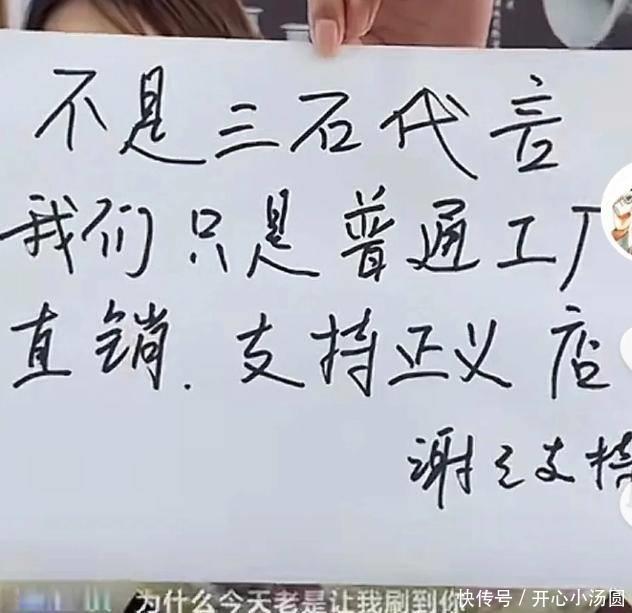 不是三石代言
我们只是普通工厂
直销.支持正义店
谢谢支持
为什么今天老是让我刷到你
快传号/开心小汤圆